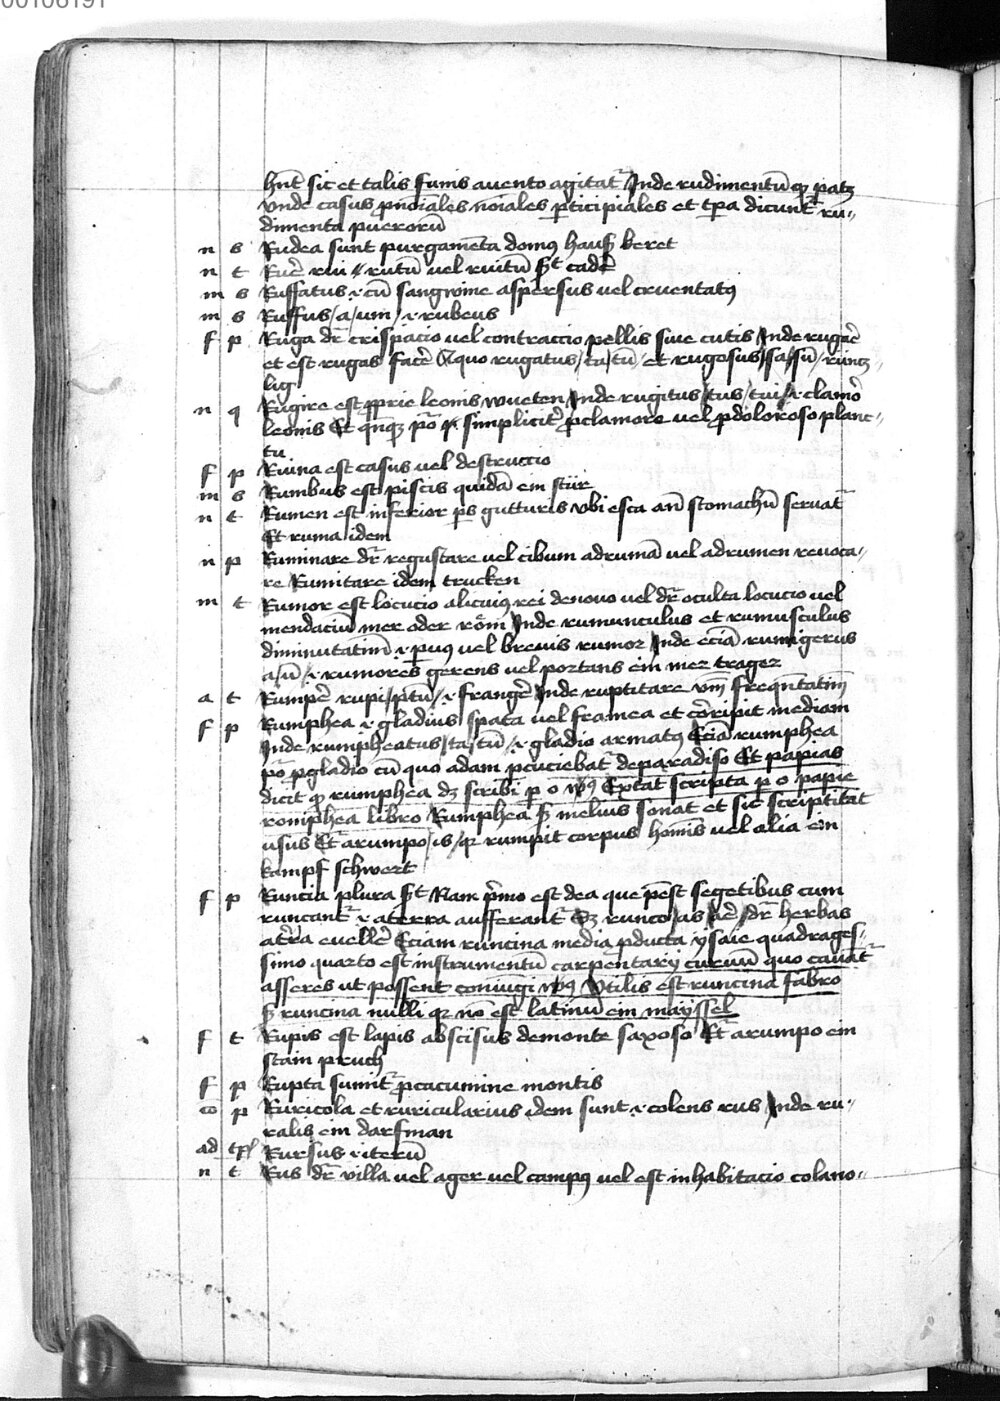 00106191
hn̄t sic et talis funis a uento agitat᷑ Inde rudimentū qꝫ patꝫ
vnde casus p̄noīales noīales p̄ticipiales et tp̄a dicunt᷑ ru〃
dimenta puerorū
n s Rudea sunt purgamēta domꝰ hauß keret
n t Ruē rui rutū uel ruitū cadē
m s Ruffatus .i. cū sangwine aspersus uel cruentatꝰ
m s Ruffus / a / um / .i. rubeus
f p Ruga dr̄ crispacio uel contraccio pellis siue cutis Inde rugaē
et est rugas facē A quo rugatus / ta / tū / et rugosus / sa / sū / runcz〃
lig
n q Rugire est ꝓprie leonis wueten Inde rugitus / tus / tui / .i. clamor
leonis Et qn̄qꝫ pō simplicit᷑ ꝓ clamore uel ꝓ doloroso planc〃
tu
f p Ruina est casus uel destruccio
m s Rumbus est piscis quidā ein stür
n t Rumen est inferior ps̄ gutturis vbi esca an̄ stomachū seruat᷑
Et ruma idem
n p Ruminare dr̄ regustare uel cibum ad rumā uel ad rumen reuoca〃
re Rumitare idem trucken
m t Rumor est locucio alicuiꝰ rei de nouo uel dr̄ oculta locucio uel
mendaciū mer oder rom Inde rumunculus et rumusculus
diminutatim .i. puꝰ uel breuis rumor Inde eciā rumigerus
a / ū / .i. rumores gerens uel portans ein mer trager
a t Rumpē rupi / ptū / .i. frangē Inde ruptitare vm̄ freqn̄tatim
f p Rumphea .i. gladius spata uel framea et cōripit mediam
Inde rumpheatus / ta / tū / .i. gladio armatꝰ Eciā rumphea
pō ꝓ gladio cū quo adam pcuciebat᷑ de paradiso Et papias
dicit qꝫ rumphea dꝫ scribi p o vꝰ Extat scripta p o papie
romphea libro Rumphea sꝫ melius sonat et sic scriptitat
usus Et᷑ a rumpo / is / qꝛ rumpit corpus hoīnis uel alia ein
kampf schwert
f p Runcia plura st̄ Nam p̄mo est dea que pēst segetibus cum
runcant᷑ .i. a terra aufferant᷑ Et runco / as / aē / dr̄ herbas
a tērra euellē Eciam runcina media pducta ysaie quadrages〃
simo quarto est instrumentū carpentarij curuū quo cauat᷑
asseres ut possent coniungi vꝰ Vtilis est runcina fabro
sꝫ runcina nulli qꝛ nō est latinū ein mayssel
f t Rupis est lapis abscisus de monte saxoso Et᷑ a rumpo ein
stain pruch
f p Rupta sumit᷑ ꝓ cacumine montis
co p Ruricola et ruricularius idem sunt .i. colens rus Inde ru〃
ralis ein darfman
ad Rursus .i. iterū
n t Rus dr̄ villa uel ager uel campꝰ uel est inhabitacio colano〃